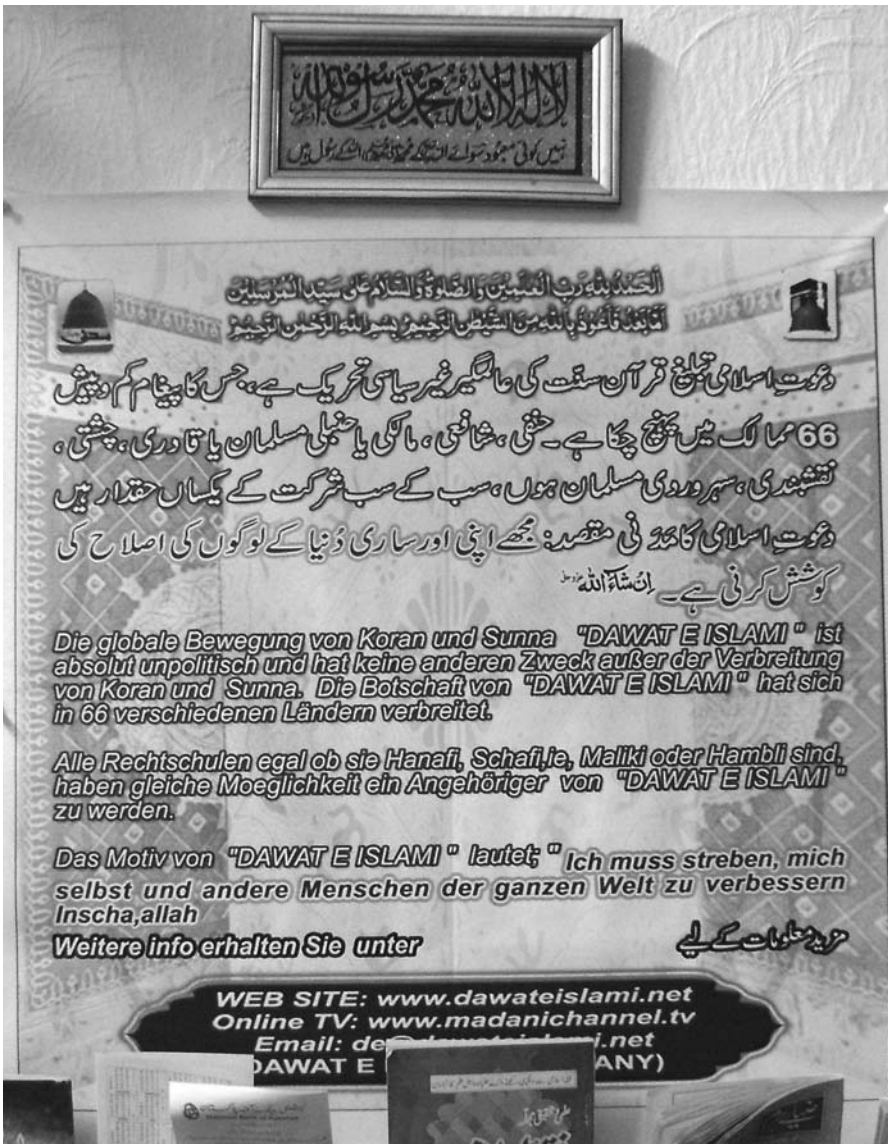 لا إله إلا الله محمد رسول الله
نہیں کوئی معبود سوائے اللہ کے محمد اللہ کے رسول ہیں
اَلْحَمْدُ لِلّٰہِ رَبِّ الْعٰلَمِیْنَ وَالصَّلٰوۃُ وَالسَّلَامُ عَلٰی سَیِّدِ الْمُرْسَلِیْنَ
اَمَّا بَعْدُ فَاَعُوْذُ بِاللّٰہِ مِنَ الشَّیْطٰنِ الرَّجِیْمِ بِسْمِ اللّٰہِ الرَّحْمٰنِ الرَّحِیْمِ
دعوتِ اسلامی تبلیغ قرآن سنّت کی عالمگیر غیر سیاسی تحریک ہے، جس کا پیغام کم و بیش
66 ممالک میں پہنچ چکا ہے۔ حنفی، شافعی، مالکی یا حنبلی مسلمان یا قادری، چشتی،
نقشبندی، سہروردی مسلمان ہوں، سب کے سب شرکت کے یکساں حقدار ہیں
دعوتِ اسلامی کا مَدَنی مقصد: مجھے اپنی اور ساری دُنیا کے لوگوں کی اصلاح کی
کوشش کرنی ہے۔ اِنْ شَآءَ اللّٰہ عزوجل
Die globale Bewegung von Koran und Sunna "DAWAT E ISLAMI " ist
absolut unpolitisch und hat keine anderen Zweck außer der Verbreitung
von Koran und Sunna. Die Botschaft von "DAWAT E ISLAMI " hat sich
in 66 verschiedenen Ländern verbreitet.
Alle Rechtschulen egal ob sie Hanafi, Schafi,ie, Maliki oder Hambli sind,
haben gleiche Moeglichkeit ein Angehöriger von "DAWAT E ISLAMI "
zu werden.
Das Motiv von "DAWAT E ISLAMI " lautet; " Ich muss streben, mich
selbst und andere Menschen der ganzen Welt zu verbessern
Inscha,allah
Weitere info erhalten Sie unter مزید معلومات کے لیے
WEB SITE: www.dawateislami.net
Online TV: www.madanichannel.tv
Email: de@dawateislami.net
DAWAT E ANY)